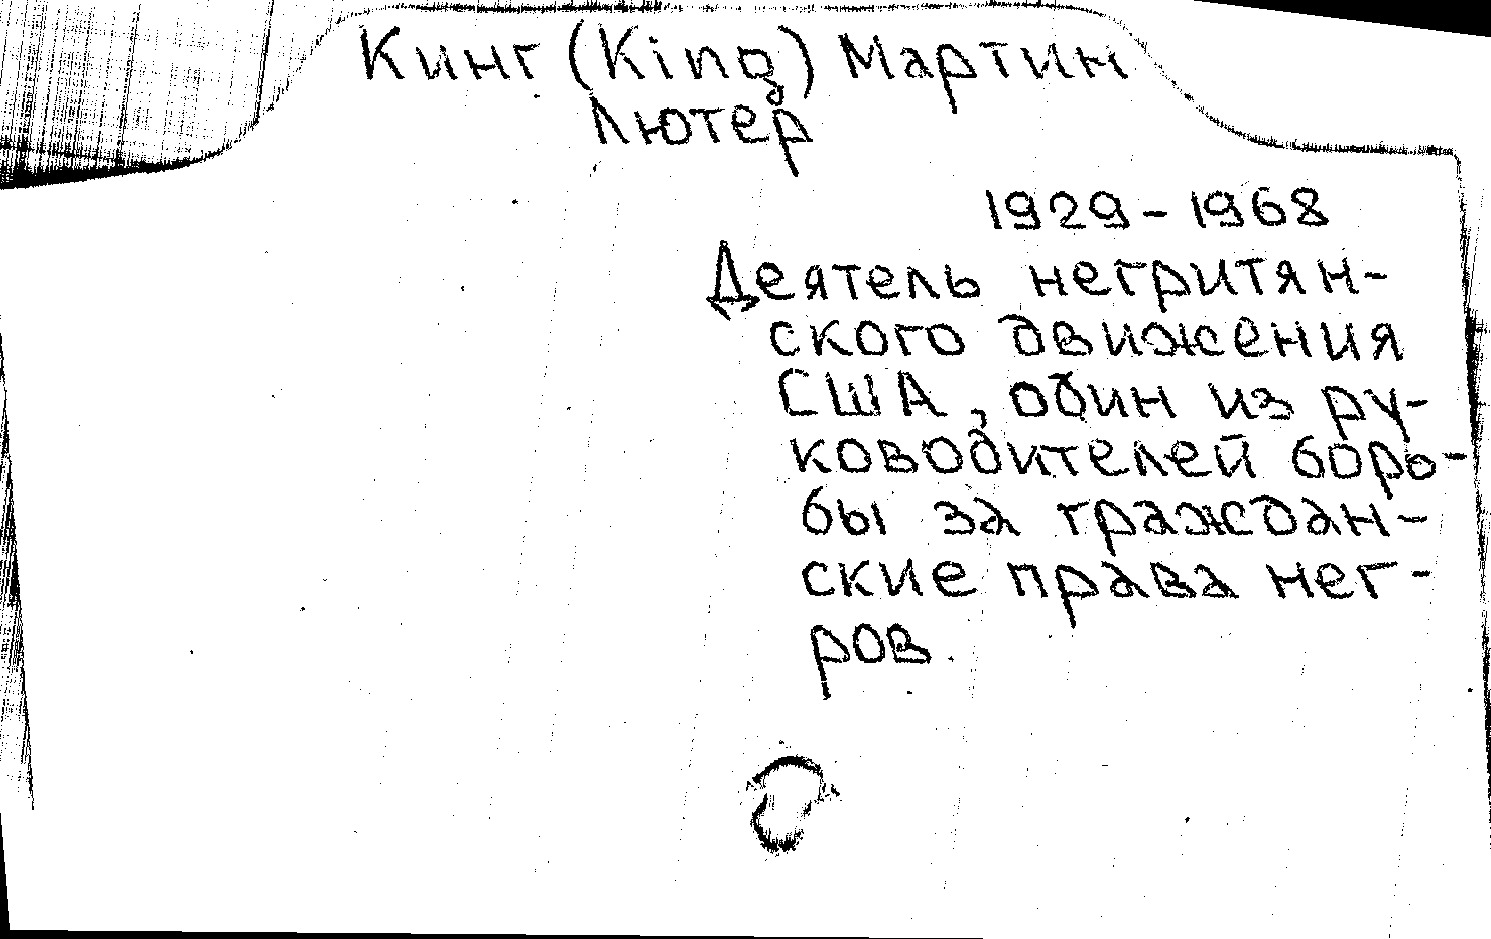 Кинг (King) Мартин
Лютер
1929 - 1968
Деятель негритян-
ского движения
США, один из ру-
ководителей борь-
бы за граждан-
ские права нег-
ров.